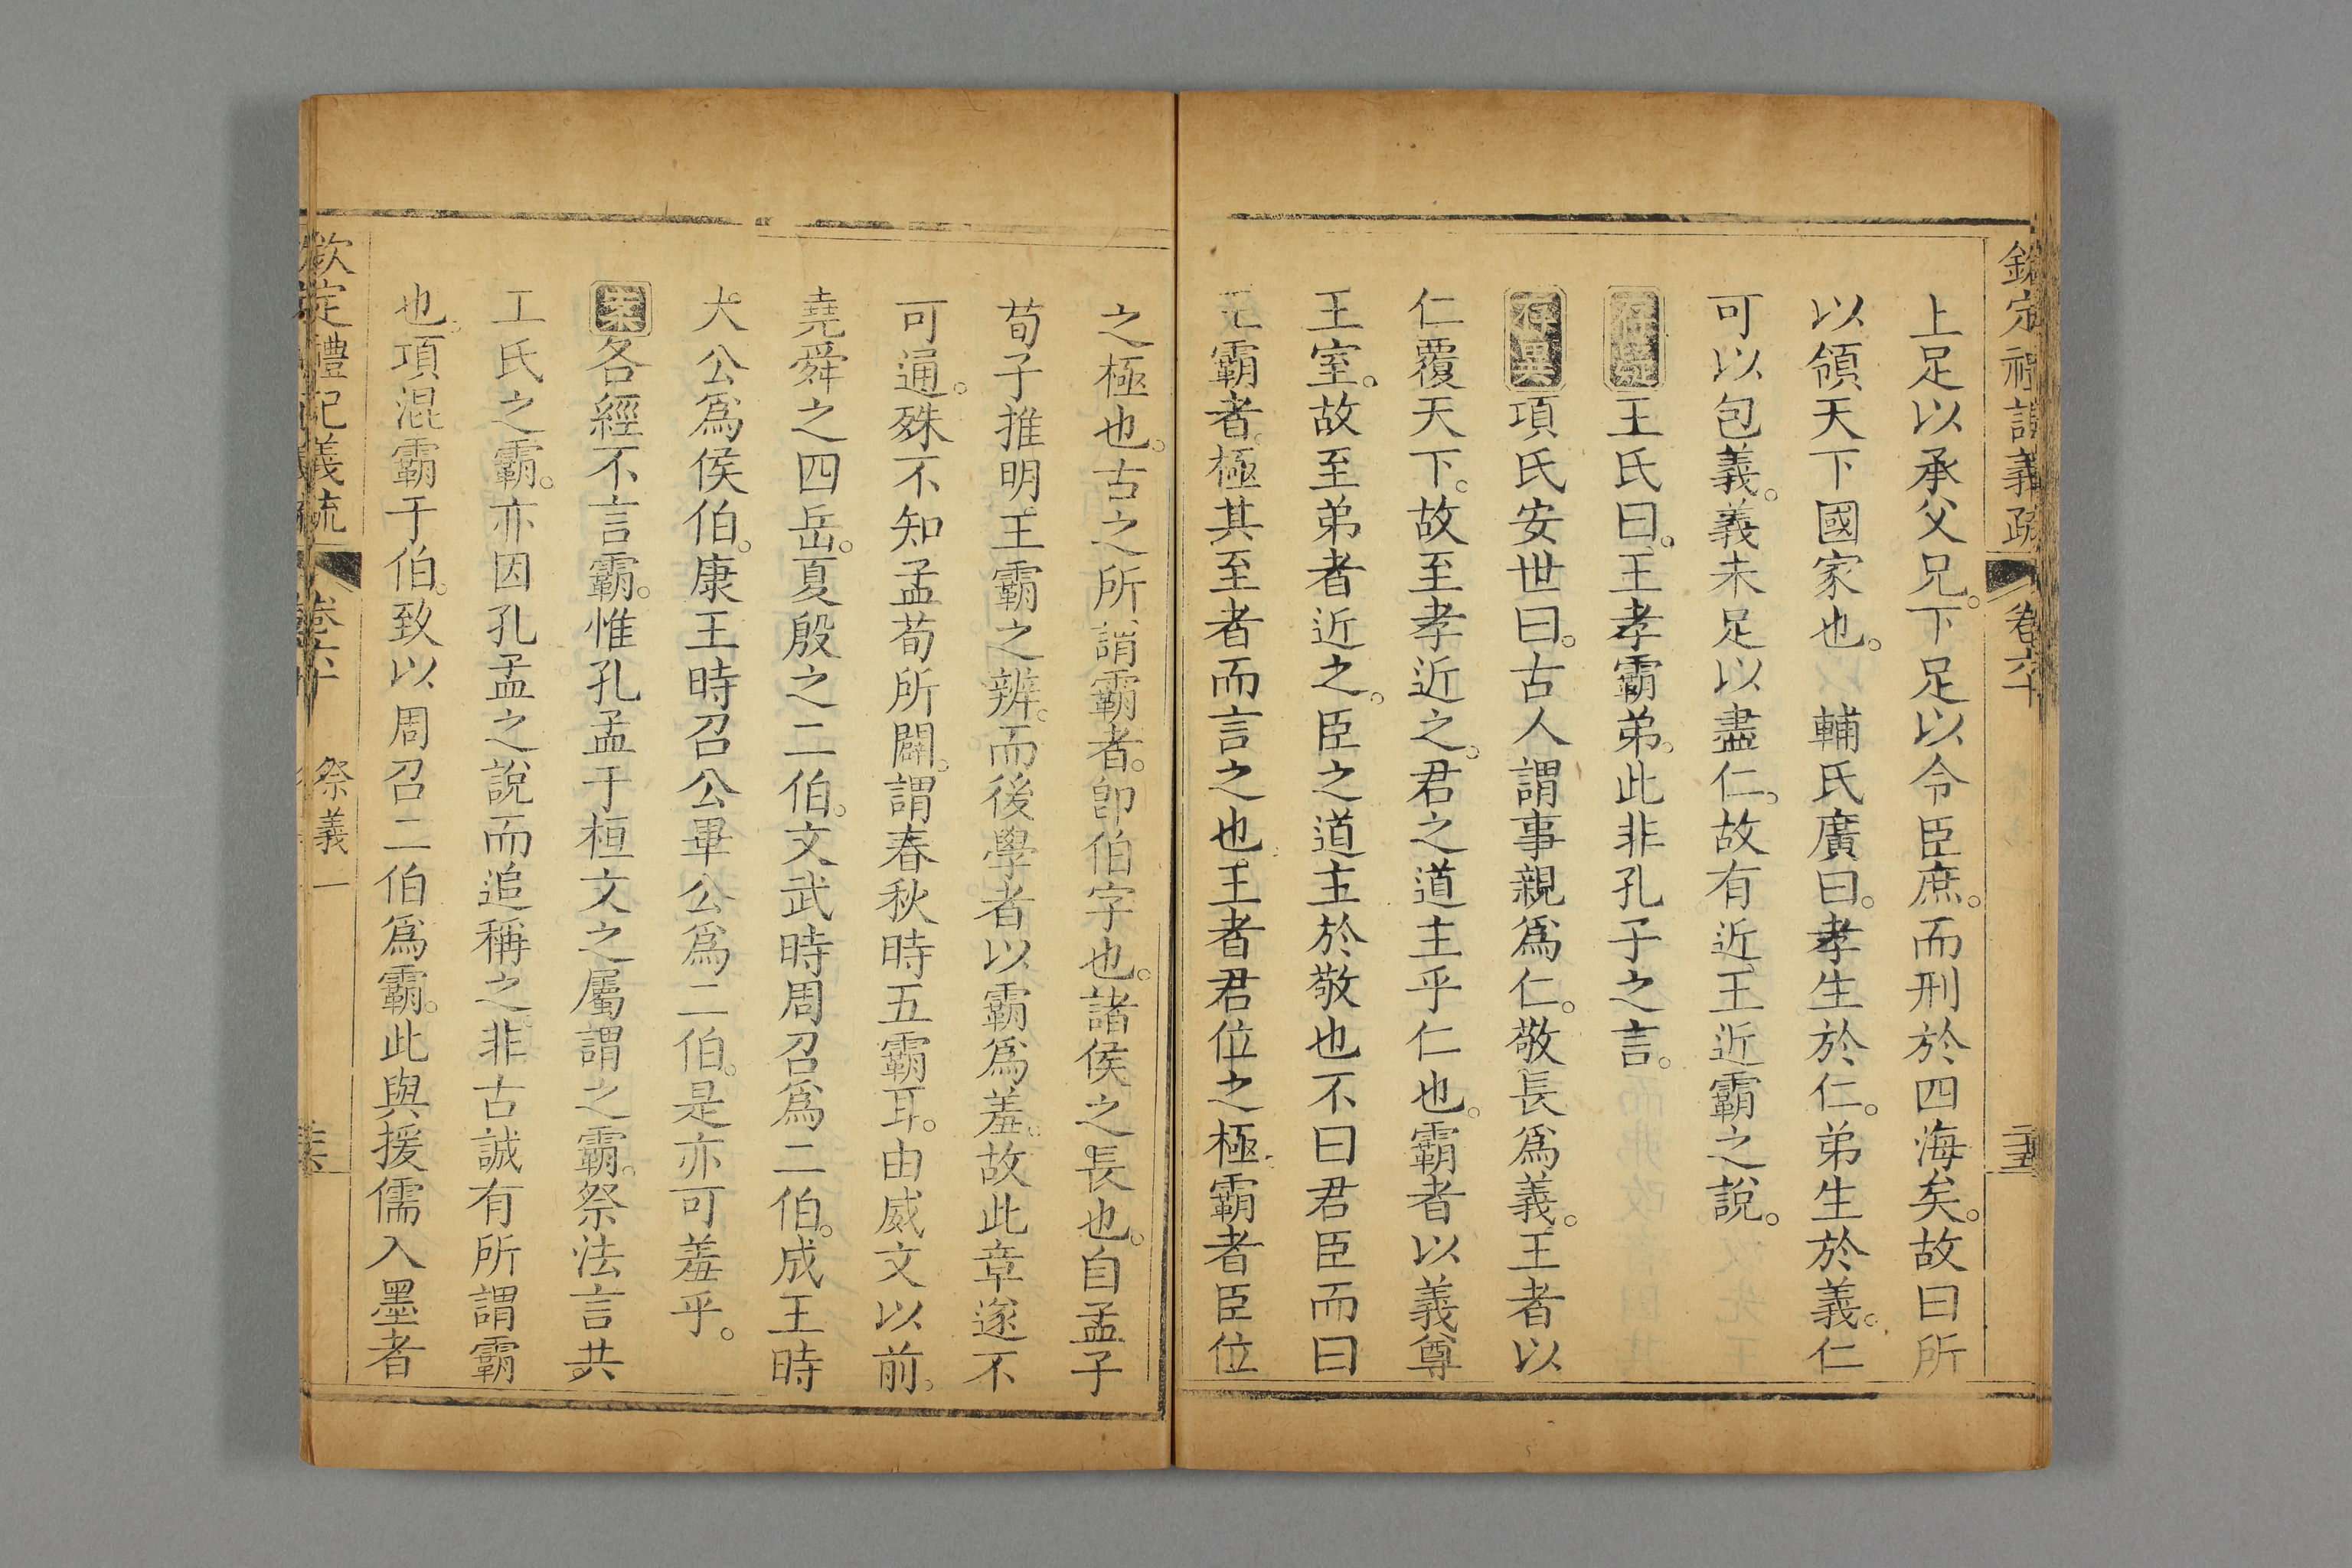 欽定禮記義疏 卷六十 三五
上足以承父兄。下足以令臣庶。而刑於四海矣。故曰所
以領天下國家也。 輔氏廣曰。孝生於仁。弟生於義。仁
可以包義。義未足以盡仁。故有近王近霸之說。
存疑王氏曰。王孝霸弟。此非孔子之言。
存異項氏安世曰。古人謂事親爲仁。敬長爲義。王者以
仁覆天下。故至孝近之。君之道主乎仁也。霸者以義尊
王室。故至弟者近之。臣之道主於敬也不曰君臣而曰
王霸者。極其至者而言之也王者君位之極霸者臣位
之極也。古之所謂霸者。卽伯字也。諸侯之長也。自孟子
荀子推明王霸之辨。而後學者以霸爲羞。故此章遂不
可通。殊不知孟荀所闢。謂春秋時五霸耳。由威文以前。
堯舜之四岳。夏殷之二伯。文武時周召爲二伯。成王時
大公爲侯伯。康王時召公畢公爲二伯。是亦可羞乎。
案各經不言霸。惟孔孟于桓文之屬謂之霸。祭法言共
工氏之霸。亦因孔孟之說而追稱之。非古誠有所謂霸
也。項混霸于伯。致以周召二伯爲霸。此與援儒入墨者
欽定禮記義疏 卷六十 祭義一